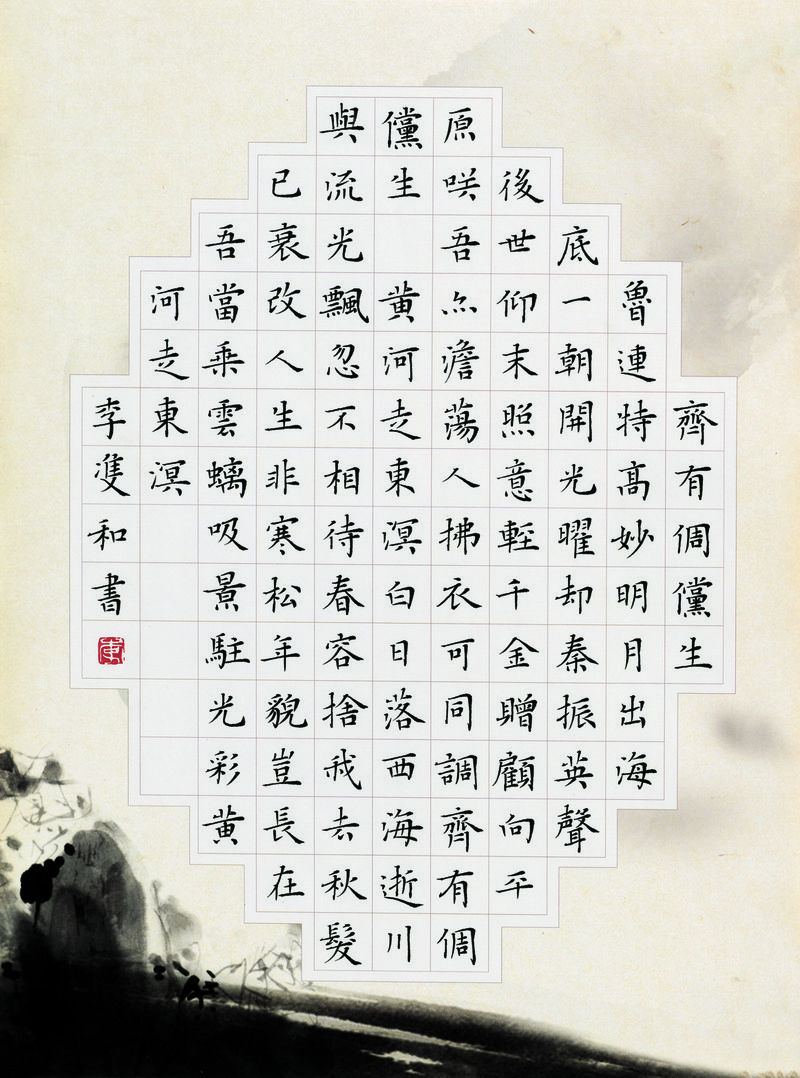 齊有倜儻生
魯連特髙妙明月出海
底一朝開光曜却秦振英聲
後世仰末照意輕千金贈顧向平
原咲吾亦澹蕩人拂衣可同調齊有倜
儻生 黄河走東溟白日落西海逝川
與流光飄忽不相待春容捨我去秋髮
已衰改人生非寒松年貌豈長在
吾當乘雲螭吸景駐光彩黄
河走東溟
李隻和書